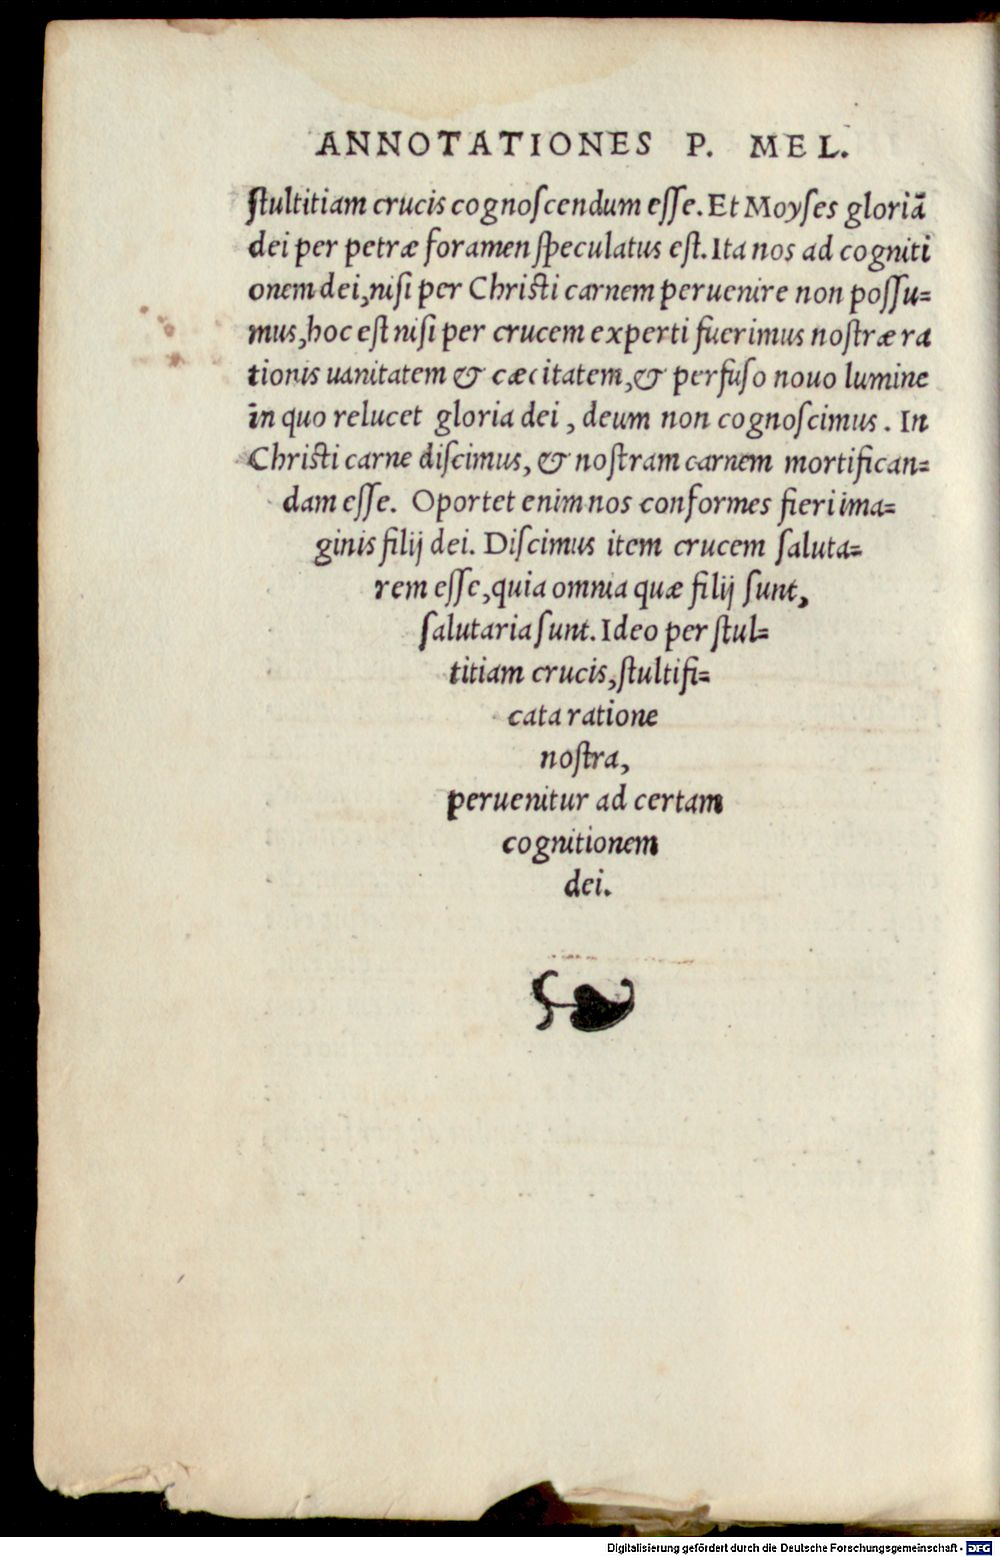 ANNOTATIONES P. MEL.
ſtultitiam crucis cognoſcendum eſſe. Et Moyſes gloriã
dei per petræ foramen ſpeculatus eſt. Ita nos ad cogniti
onem dei, niſi per Chriſti carnem peruenire non poſſu=
mus, hoc eſt niſi per crucem experti fuerimus noſtræ ra
tionis uanitatem & cæcitatem, & perfuſo nouo lumine
in quo relucet gloria dei, deum non cognoſcimus. In
Chriſti carne diſcimus, & noſtram carnem mortifican=
dam eſſe. Oportet enim nos conformes fieri ima=
ginis filij dei. Diſcimus item crucem ſaluta=
rem eſſe, quia omnia quæ filij ſunt,
ſalutaria ſunt. Ideo per ſtul=
titiam crucis, ſtultifi=
cata ratione
noſtra,
peruenitur ad certam
cognitionem
dei.
Digitalisierung gefördert durch die Deutsche Forschungsgemeinschaft - DFG